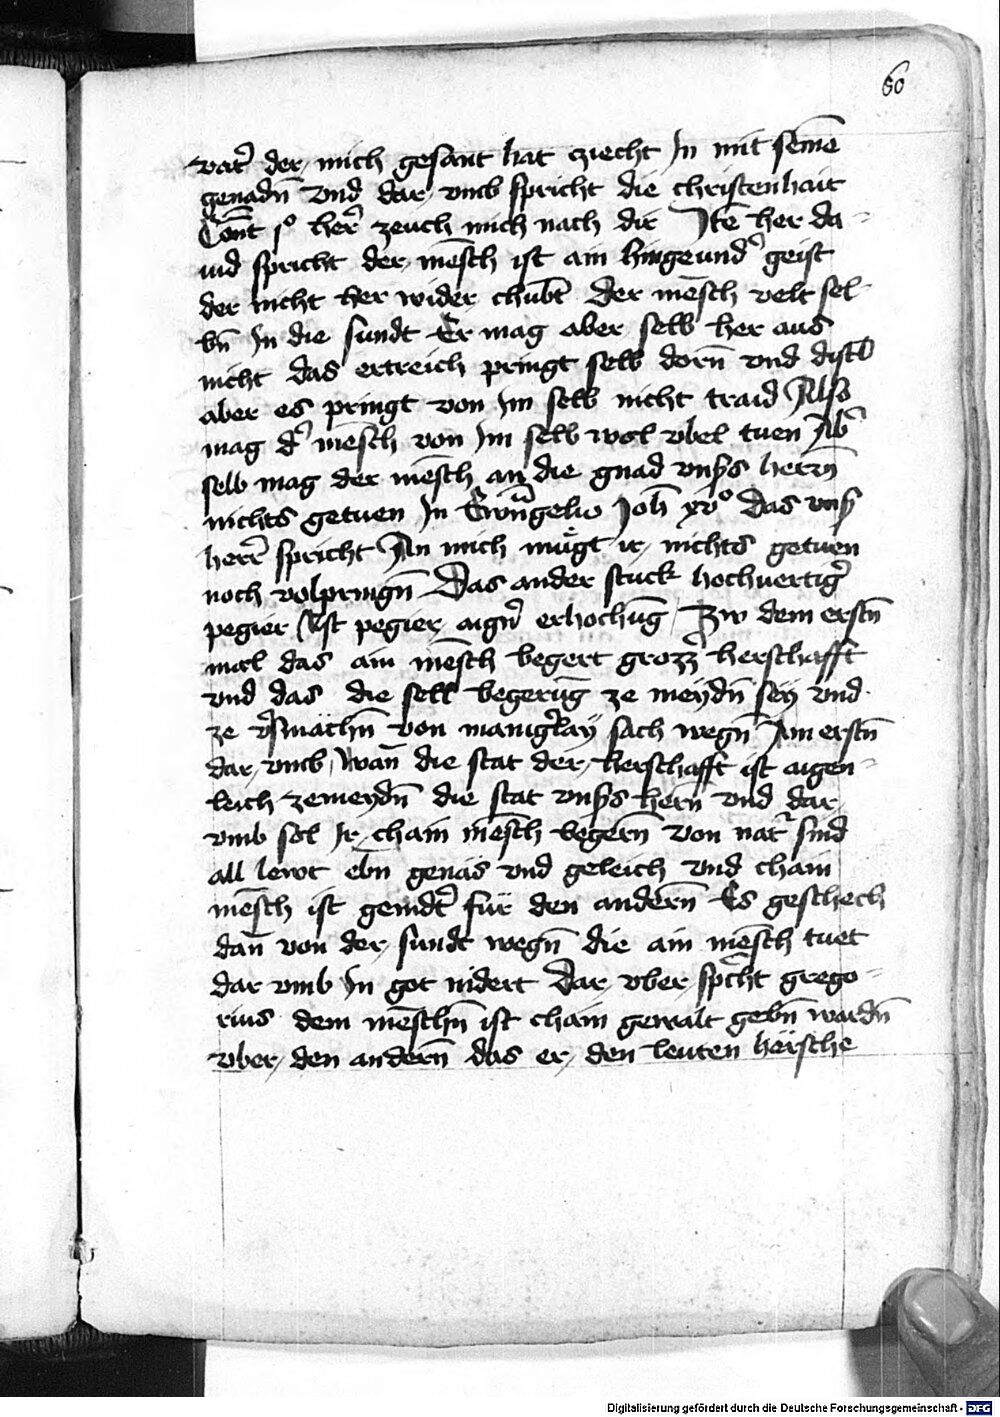 60
vat̃ der mich gesant hat ziecht Jn mit seine̅
genadn̅ vnd dar vmb spricht die christenhait
Cant̅ jº her̃ zeuch mich nach dir Jte̅ her da-
uid spricht der me̅sch ist ain hingeund̾ geist
der nicht her wider chu̅bt Der me̅sch velt sel-
bn̅ Jn die sundt Er mag aber selb her aus
nicht das ertreich pringt selb dorn̅ vnd distl
aber es pringt von Jm selb nicht traid Also
mag d̾ me̅sch von Jm selb wol vbel tuen Ab̾
selb mag der me̅sch an die gnad vnsers herrn̅
nichts getuen Jn Ewu̅gelio Joh̅ xvº das vnser
herr̃ spricht An mich mügt ir nichts getuen
noch volpringn̅ Das ander stuck hochuertig̾
pegier Ist pegier aign̾ erhochu̅g Zw dem erstn̅
mal das ain me̅sch begert grozz̾ herschafft
vnd das die selb begeru̅g ze meydn̅ sey vnd
ze v̾smächn̅ von manig̾lay sach wegn̅ Am erstn̅
dar vmb wan̅ die stat der herschafft ist aigen-
leich zemeydn̅ die stat vnsers hern̅ vnd dar
vmb sol Jr chain me̅sch begern̅ von nat̾ sind
all lewt ebn genas vnd geleich vnd chain
me̅sch ist genidt̾ für den andern̅ Es geschech
dan̅ von der sundt wegn̅ die ain me̅sch tuet
dar vmb Jn got nidert Dar vber sp̾cht grego-
rius dem me̅schn̅ ist chain gewalt gebn̅ wardn̅
vber den andern̅ das er den leuten hërsche
Digitalisierung gefördert durch die Deutsche Forschungsgemeinschaft - DFG